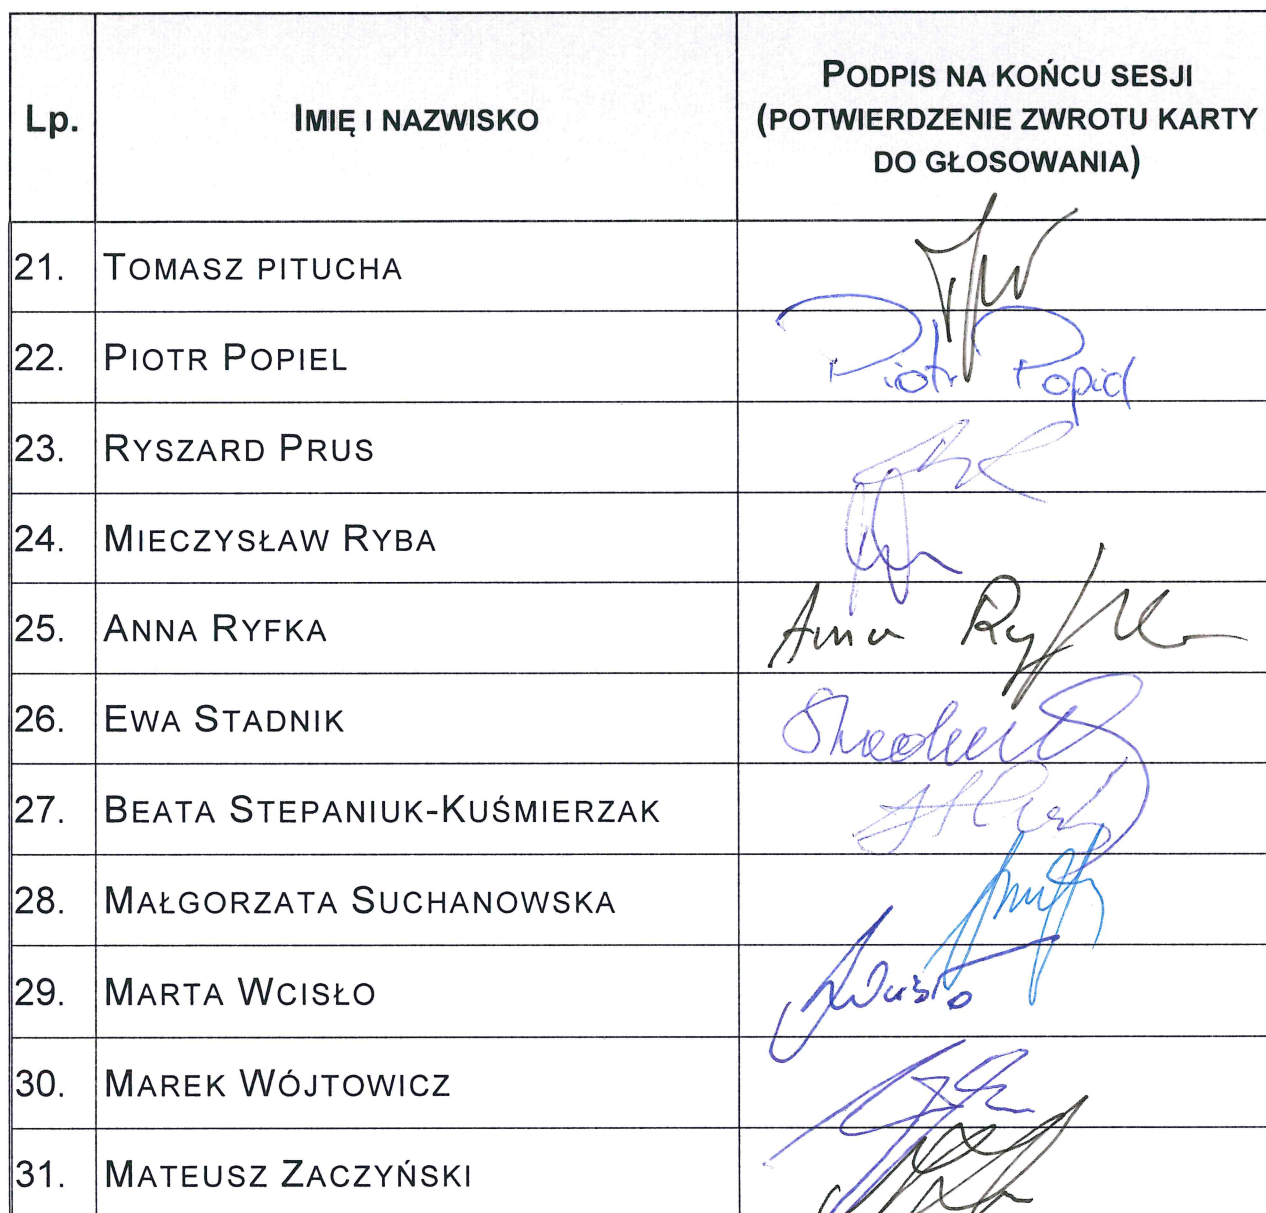 Lp.
IMIĘ I NAZWISKO
PODPIS NA KOŃCU SESJI
(POTWIERDZENIE ZWROTU KARTY
DO GŁOSOWANIA)
21. TOMASZ PITUCHA
22. PIOTR POPIEL Piotr Popiel
23. RYSZARD PRUS
24. MIECZYSŁAW RYBA
25. ANNA RYFKA Anna Ryfka
26. EWA STADNIK
27. BEATA STEPANIUK-KUŚMIERZAK
28. MAŁGORZATA SUCHANOWSKA
29. MARTA WCISŁO
30. MAREK WÓJTOWICZ
31. MATEUSZ ZACZYŃSKI